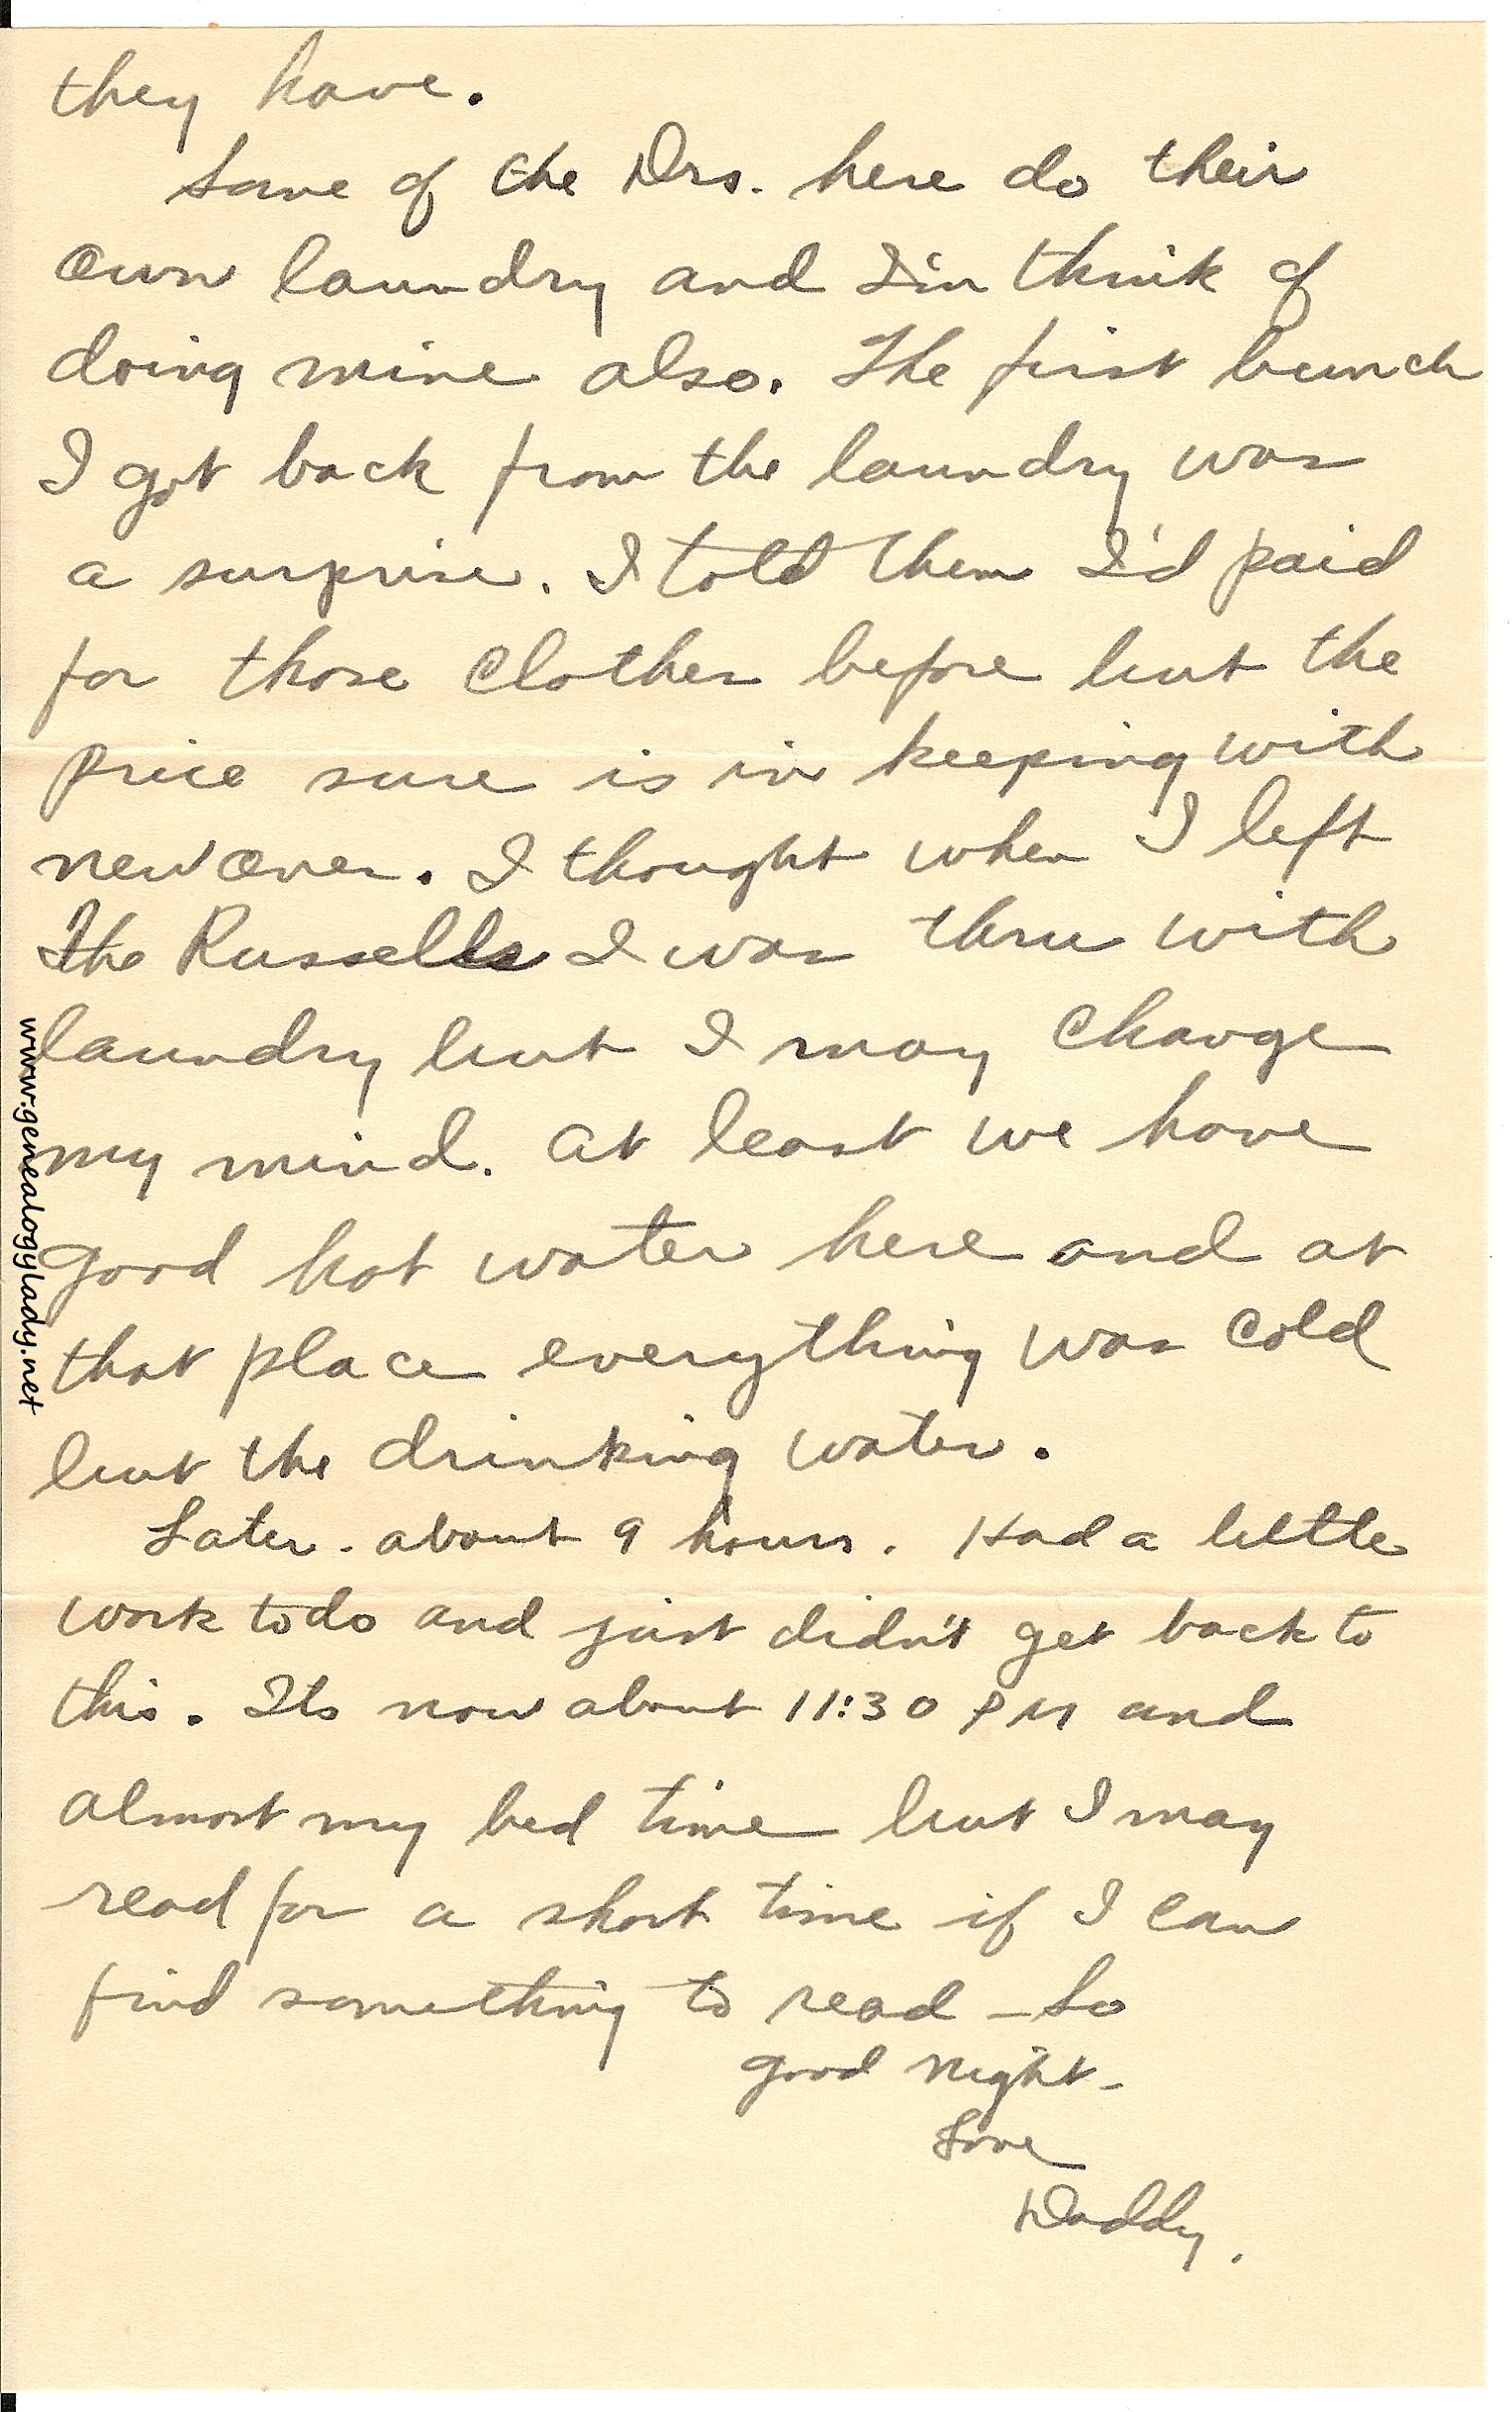 they have.
Some of the Drs. here do their
own laundry and I'm think of
doing mine also. The first bunch
I got back from the laundry was
a surprise. I told them I'd paid
for those clothes before but the
price sure is in keeping with
new ones. I thought when I left
the Russells I was thru with
laundry but I may change
my mind. At least we have
good hot water here and at
that place everything was cold
but the drinking water.
Later. about 9 hours. Had a little
work to do and just didn't get back to
this. Its now about 11:30 PM and
almost my bed time but I may
read for a short time if I can
find something to read – So
good night –
Love
Daddy.
www.genealogylady.net